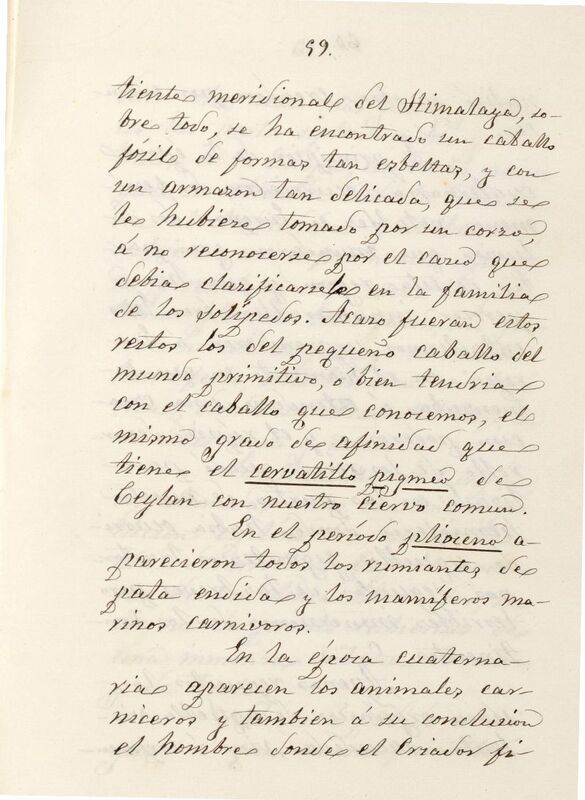 59.
tiente meridional del Himalaya, so-
bre todo, se ha encontrado un caballo
fósil de formas tan esbeltas, y con
un armazon tan delicada, que se
le hubiere tomado por un corzo,
á no reconocerse por el casco que
debia clasificarsele en la familia
de los solípedos. Acaso fueran estos
restos los del pequeño caballo del
mundo primitivo, ó bien tendria
con el caballo que conocemos, el
mismo grado de afinidad que
tiene el cervatillo pigmeo de
Ceylan con nuestro Ciervo comun.
En el período plioceno a-
parecieron todos los rumiantes de
pata endida y los mamíferos ma-
rinos carnivoros.
En la época cuaterna-
ria aparecen los animales car-
niceros y tambien á su conclusion
el hombre donde el Criador fi-